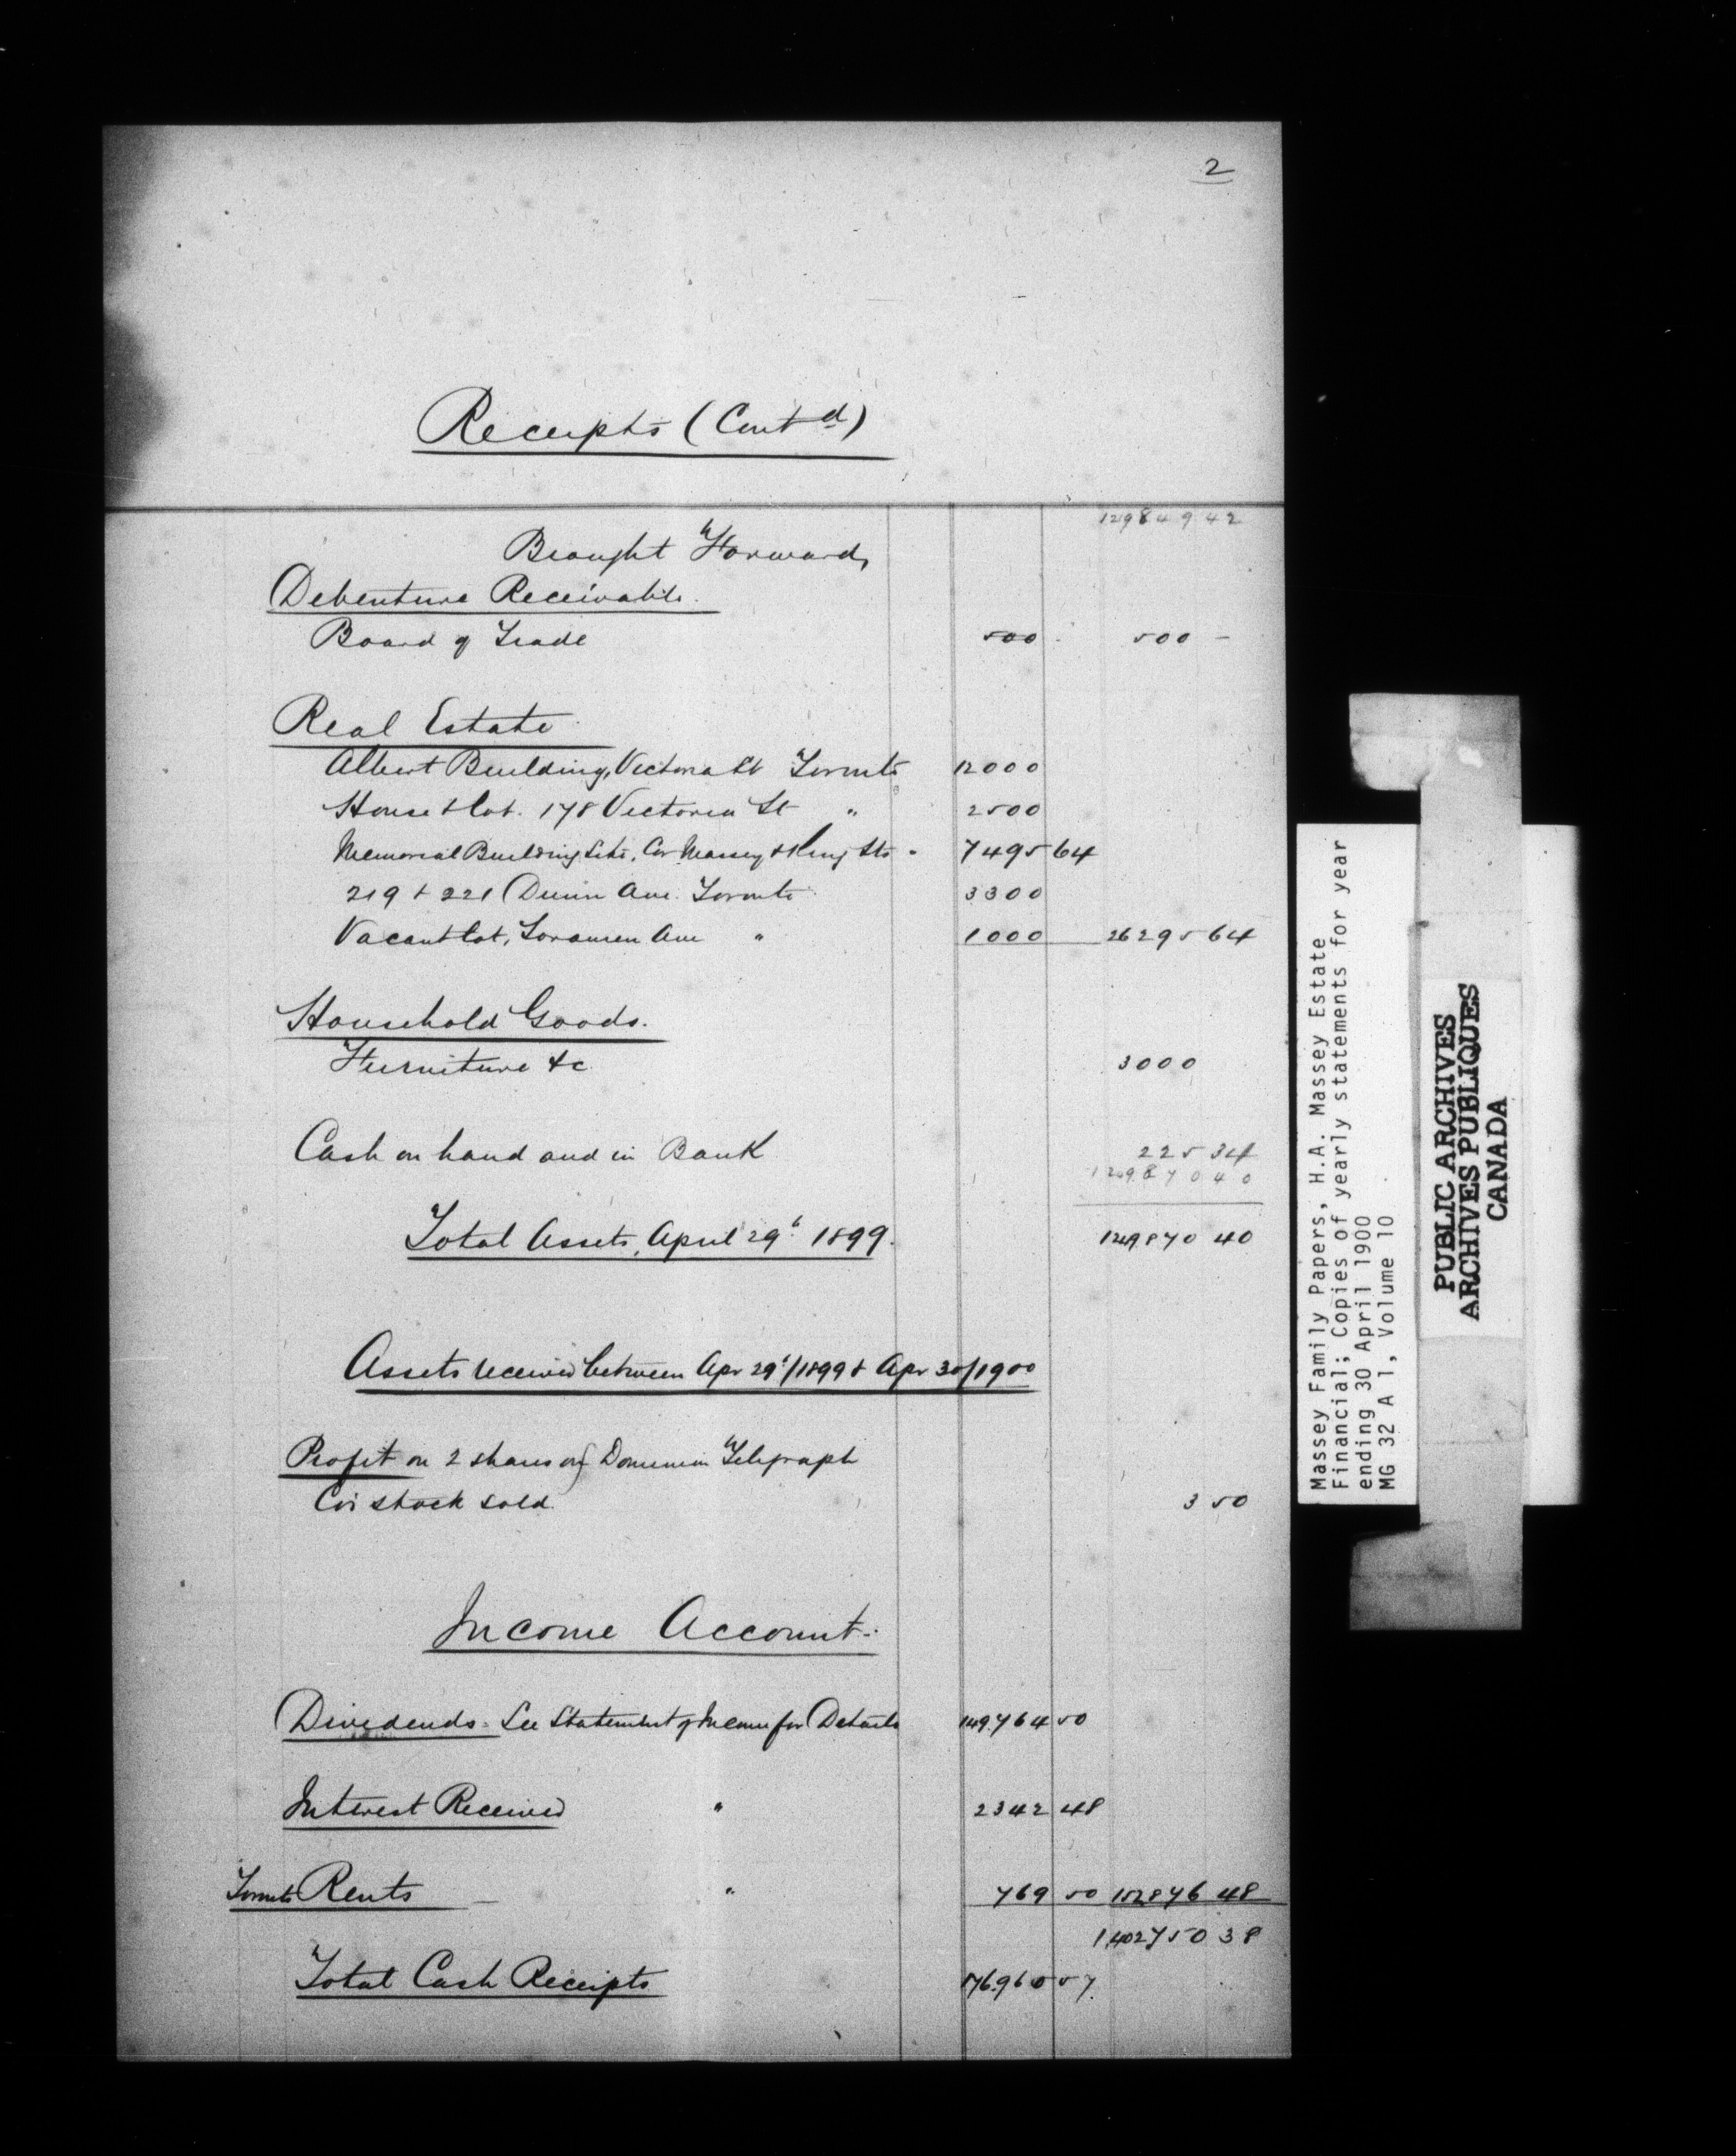 2
Receipts (Contd)
1219849 42
Brought Forward
Debenture Receivable.
Board of Trade 500 - 500 -
Real Estate
Albert Building, Victoria St Toronto 12000
House & lot. 178 Victoria St " 2500
Memorial Building Site, Cor Massey & King Sts " 7495 64
219 & 221 Dunn Ave. Toronto 3300
Vacant lot, Sorauren Ave " 1000 26295 64
Household Goods.
Furniture &c 3000
Cash on hand and in Bank 225 34
1249870 40
Total Assets, April 29t 1899. 1249870 40
Assets received between Apr 29t/1899 & Apr 30/1900
Profit on 2 shares of Dominion Telegraph
Co's stock sold. 3 50
Income Account.
Dividends - See Statement of Income for Details 149.764 50
Interest Received " 2342 48
Toronto Rents " 769 50 152876 48
1,402750 38
Total Cash Receipts 176.960 57
Massey Family Papers, H.A. Massey Estate
Financial; Copies of yearly statements for year
ending 30 April 1900
MG 32 A 1, Volume 10
PUBLIC ARCHIVES
ARCHIVES PUBLIQUES
CANADA